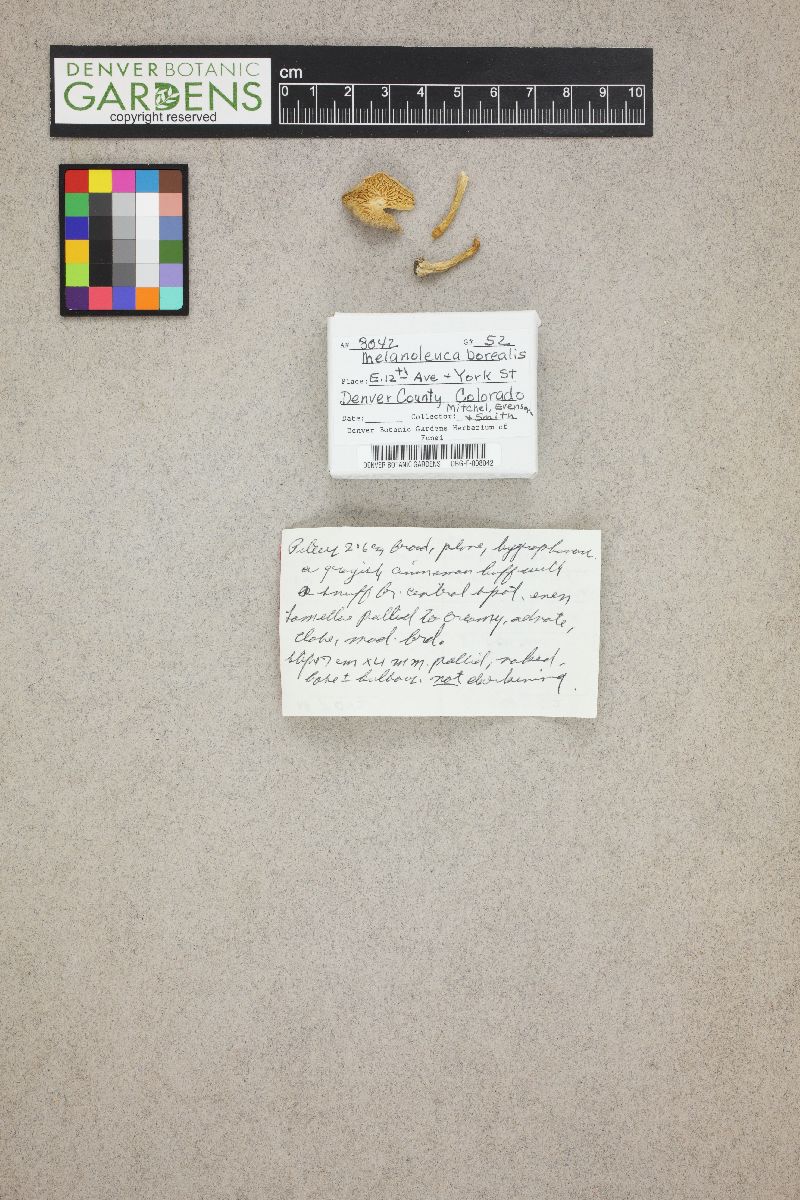 DENVER BOTANIC
GARDENS
copyright reserved
cm
0 1 2 3 4 5 6 7 8 9 10
A# 8042 G# 52
Melanoleuca borealis
Place: E. 12th Ave + York St
Denver County, Colorado
Mitchel, Evenson
Date: Collector: + Smith
Denver Botanic Gardens Herbarium of
Fungi
DENVER BOTANIC GARDENS DBG-F-008042
Pileus broad, plane, hygrophanous
a grayish cinnamon buff with
a snuff br. central spot, even
Lamellae pallid to creamy, adnate,
close, mod. brd.
Stipe 7 cm x 4 mm. pallid, naked,
base ± bulbous. not darkening.